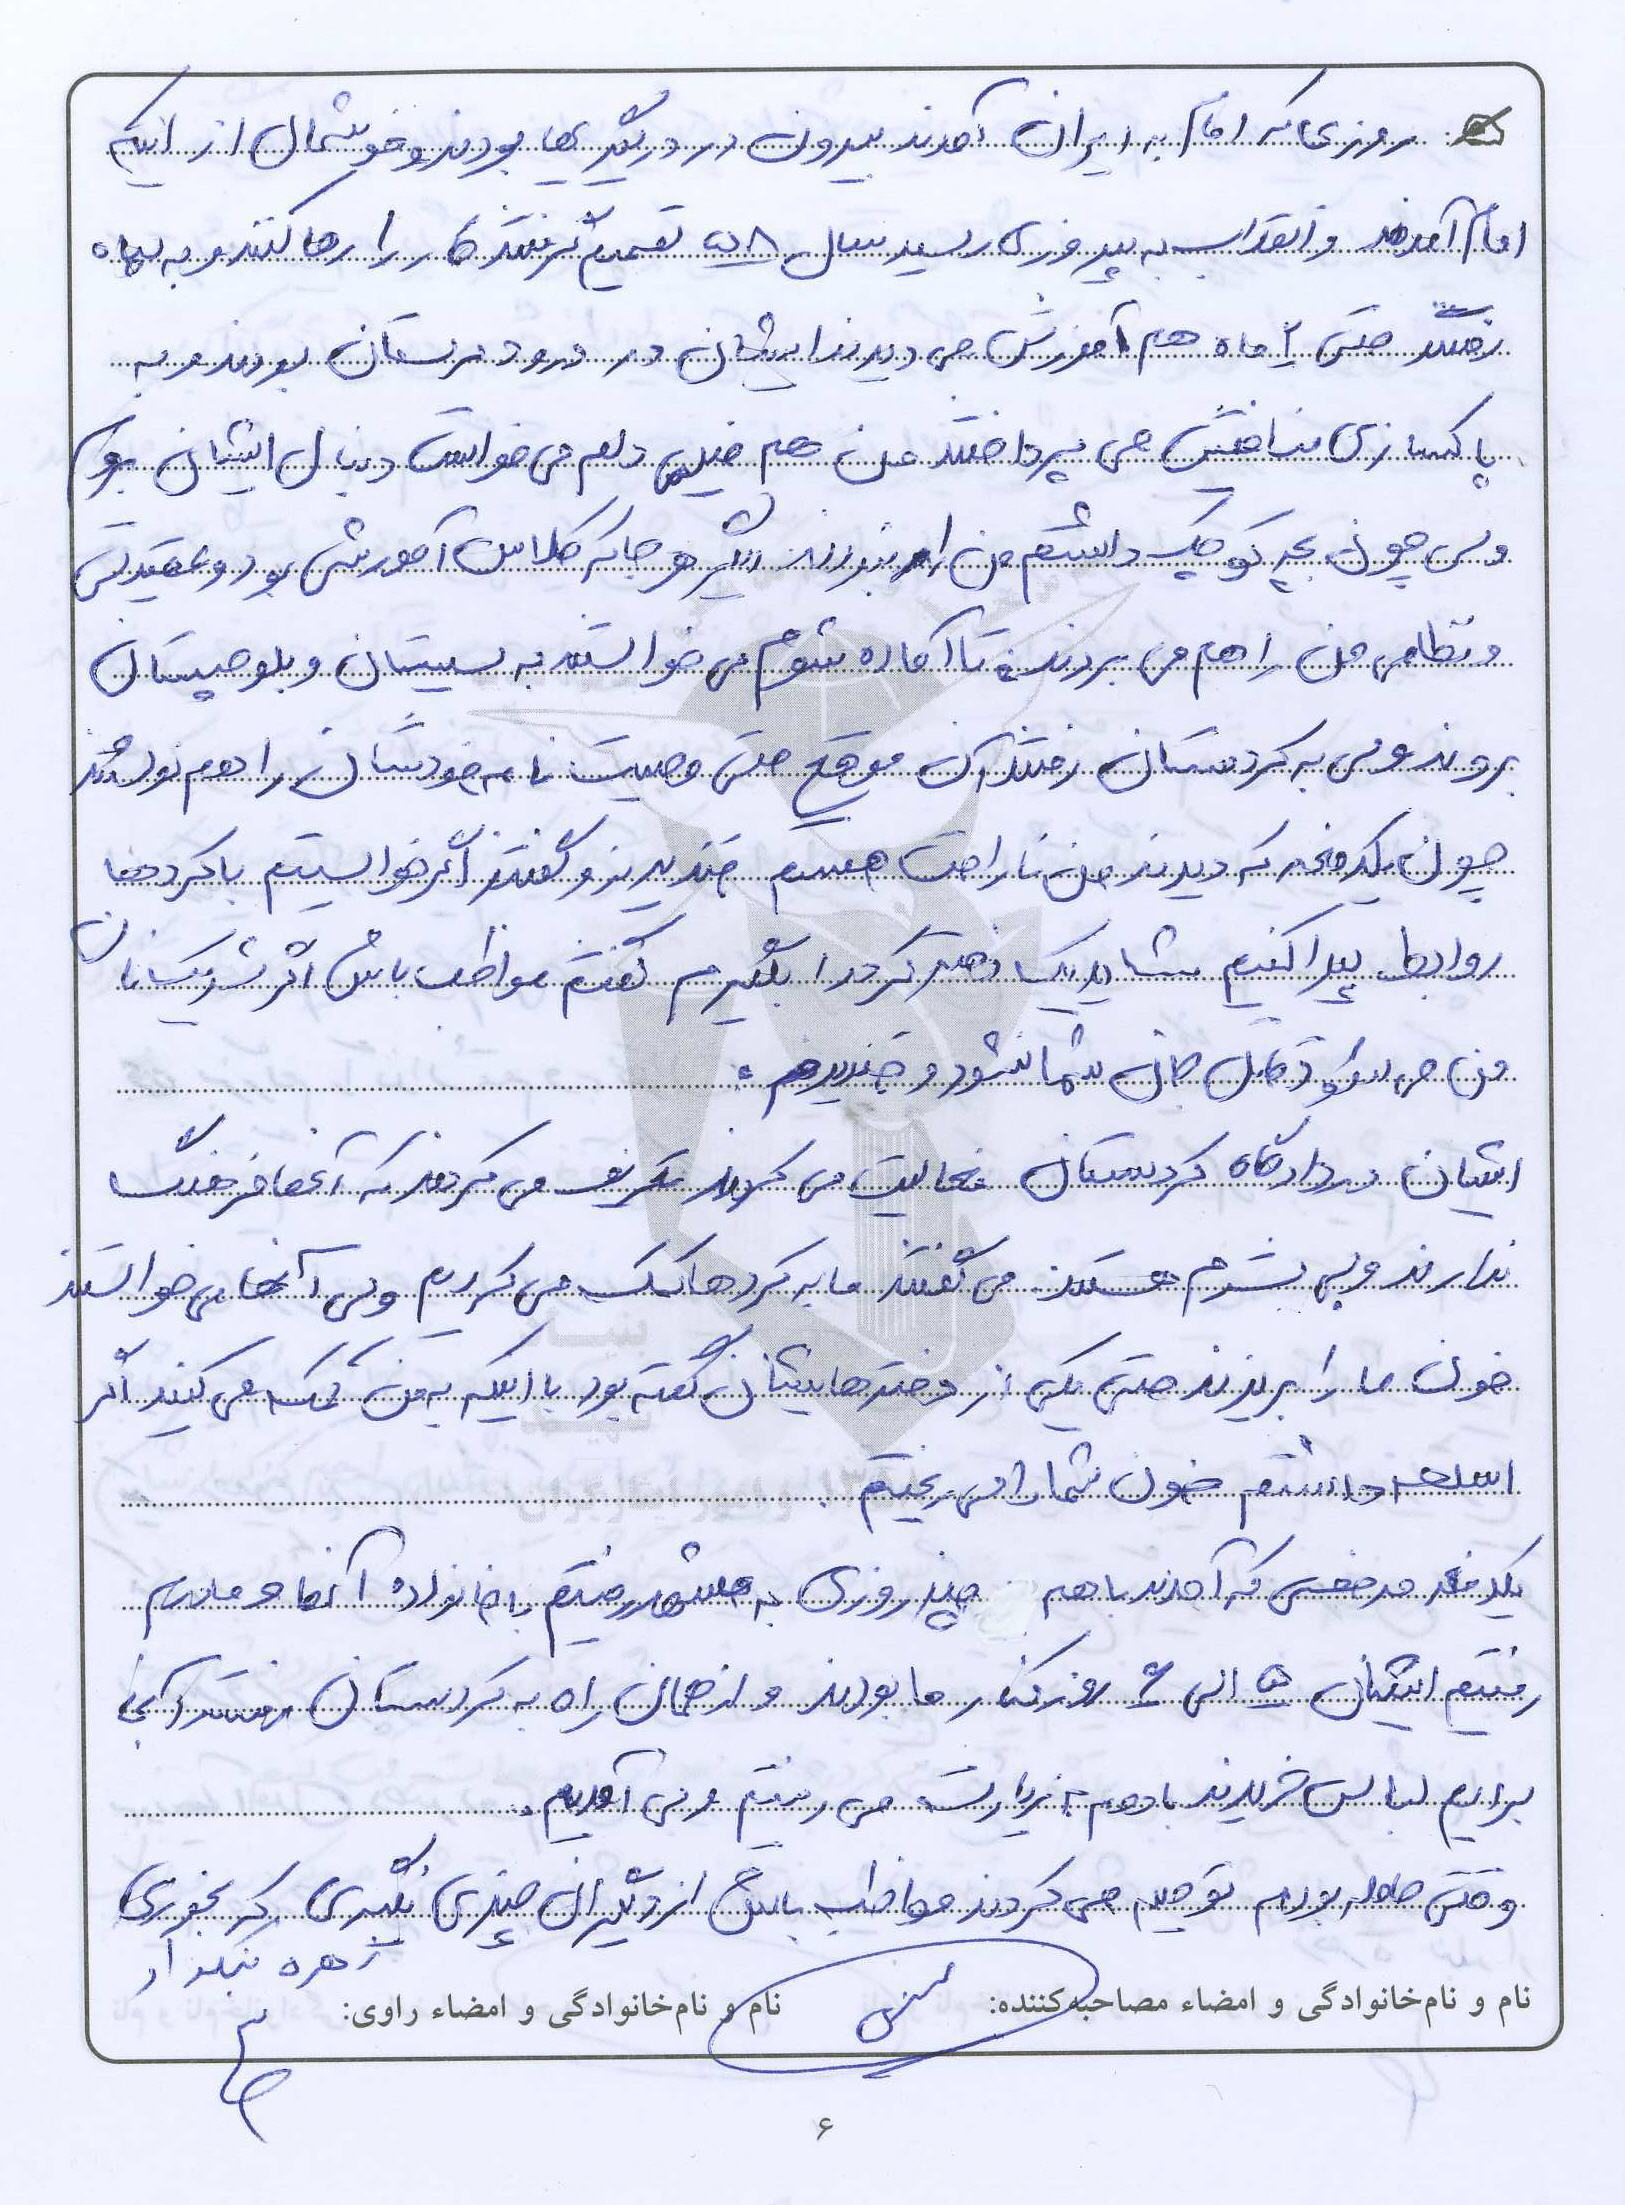 روزی که امام به ایران آمدند بیرون در درگیری ها بودند و خوشحال از اینکه
امام آمدند و انقلاب به پیروزی رسید سال ۵۸ تصمیم گرفتند کار را رها کنند و به سپاه
رفتند حتی ۲ ماه هم آموزش می دیدند ایشان در درود لرستان بودند و به
پاکسازی منافقین می پرداختند من هم خیلی دلم می خواست دنبال ایشان بروم
ولی چون بچه کوچک داشتم من را نبردند هر جا که کلاس آموزشی بود و عقیدتی
و نظامی من را هم می بردند تا آماده شوم می خواستند به سیستان و بلوچستان
بروند ولی به کردستان رفتند آن موقع حتی وصیت نامه خودشان را هم نوشتند
چون یکدفعه که دیدند من ناراحت هستم خندیدند و گفتند اگر خواستیم با کردها
روابط پیدا کنیم شاید یک دختر کرد را بگیرم گفتم مواظب باش اگر شریک نان
من می شود قاتل جان شما نشود و خندیدم .
ایشان در دادگاه کردستان فعالیت می کردند تعریف می کردند که آنها فرهنگ
ندارند و بی شرم هستند می گفتند ما به کردها کمک می کردیم ولی آنها می خواستند
خون ما را بریزند حتی یکی از دخترهایشان گفته بود با اینکه به من کمک می کنید اگر
اسلحه داشتم خون شما را می ریختم .
یکدفعه مرخصی که آمدند با هم چند روزی به مشهد رفتیم با خانواده آنها و مادرم
رفتیم ایشان ۵ الی ۶ روز کنار ما بودند و از همان راه به کردستان رفتند آنجا
برایم لباس خریدند با هم به زیارت می رفتیم و می آمدیم .
وقتی حامله بودم توصیه می کردند مواظب باش از دیگران چیزی نگیری که بخوری
زهره
نام و نام‌خانوادگی و امضاء مصاحبه‌کننده: نام و نام‌خانوادگی و امضاء راوی:
۶